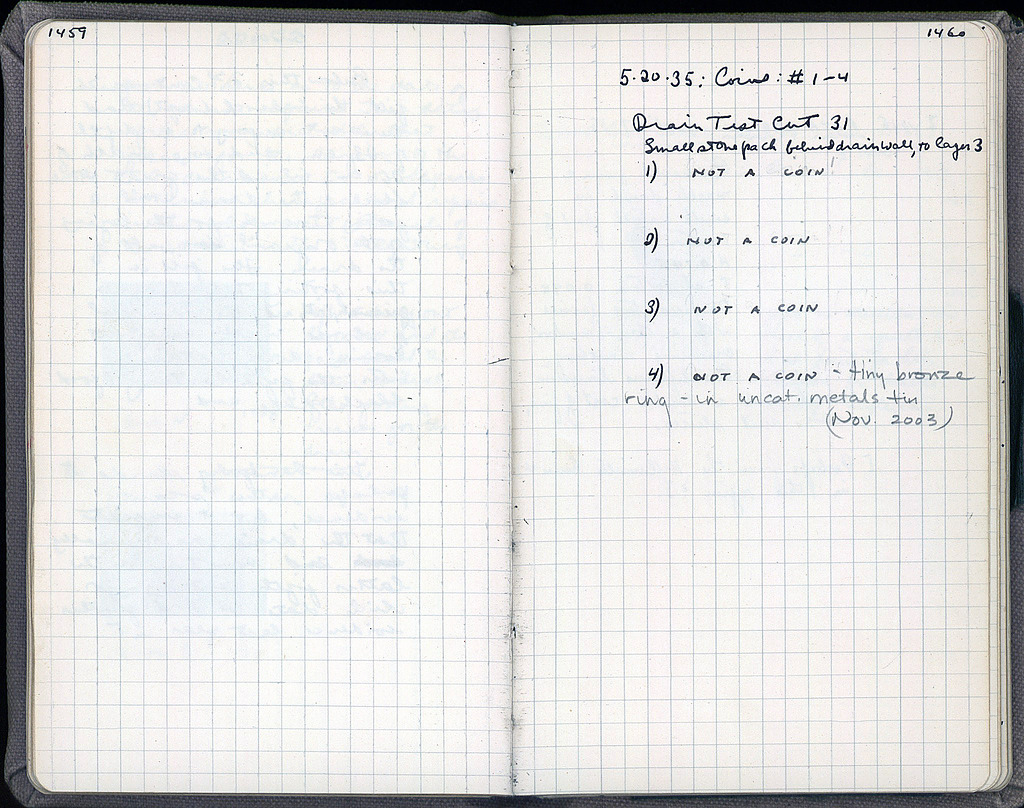 1459
1460
5.20.35: Coins: #1-4
Drain Test Cut 31
Small stone pack behind drain wall, to layer 3
1) NOT A COIN
2) NOT A COIN
3) NOT A COIN
4) NOT A COIN - tiny bronze
ring - in uncat. metals tin
(Nov. 2003)